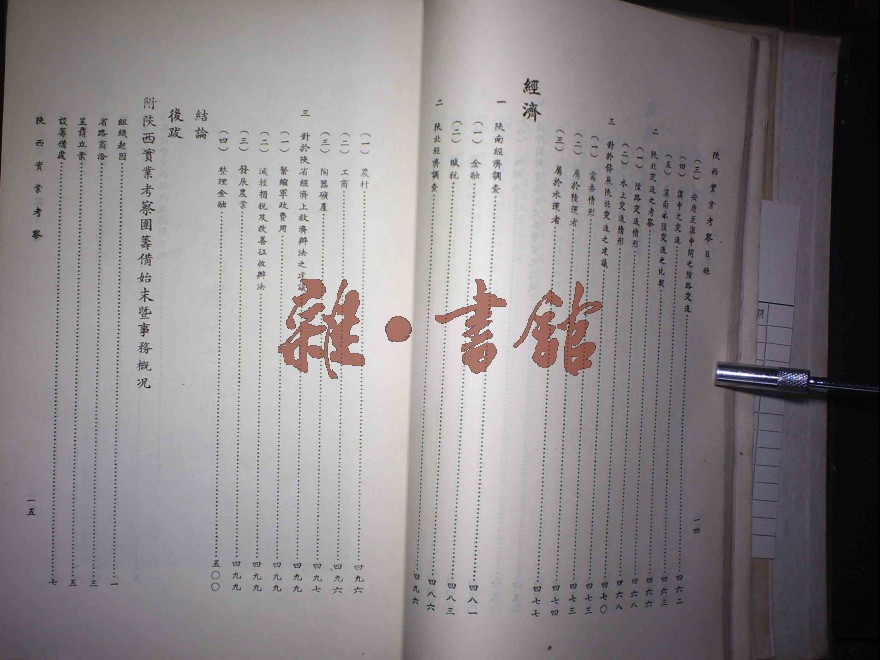 陝西實業考察目錄
(三) 安康至漢中間之陸路交通 四六二
(四) 漢中之交通 四六三
(五) 漢南水陸交通之比較 四六六
二 陝北交通之考察 四六六
(一) 陸路交通情形 四六八
(二) 水上交通情形 四六八
三 對於發展陝北交通之建議 四七〇
(一) 需要情形 四七三
(二) 屬於陸運者 四七三
(三) 屬於水運者 四七四
經濟 四七七
一 陝南經濟調查
(一) 金融 四八一
(二) 賦稅 四八三
二 陝北經濟調查 四八六
四九六
一四
(一) 農村 四九六
(二) 工商 四九六
(三) 陶器礦產 四九七
三 對於陝省經濟上救濟辦法之建議 四九九
(一) 緊縮軍政費用 四九九
(二) 減輕捐稅及改善征收辦法 四九九
(三) 發展農業 四九九
(四) 整理金融 五〇〇
結論
後跋
附陝西實業考察團籌備始末暨事務概況
組織起因 一
省路商洽 三
呈鼐立案 五
設籌備處 七
陝西實業考察
一五
雜·書館